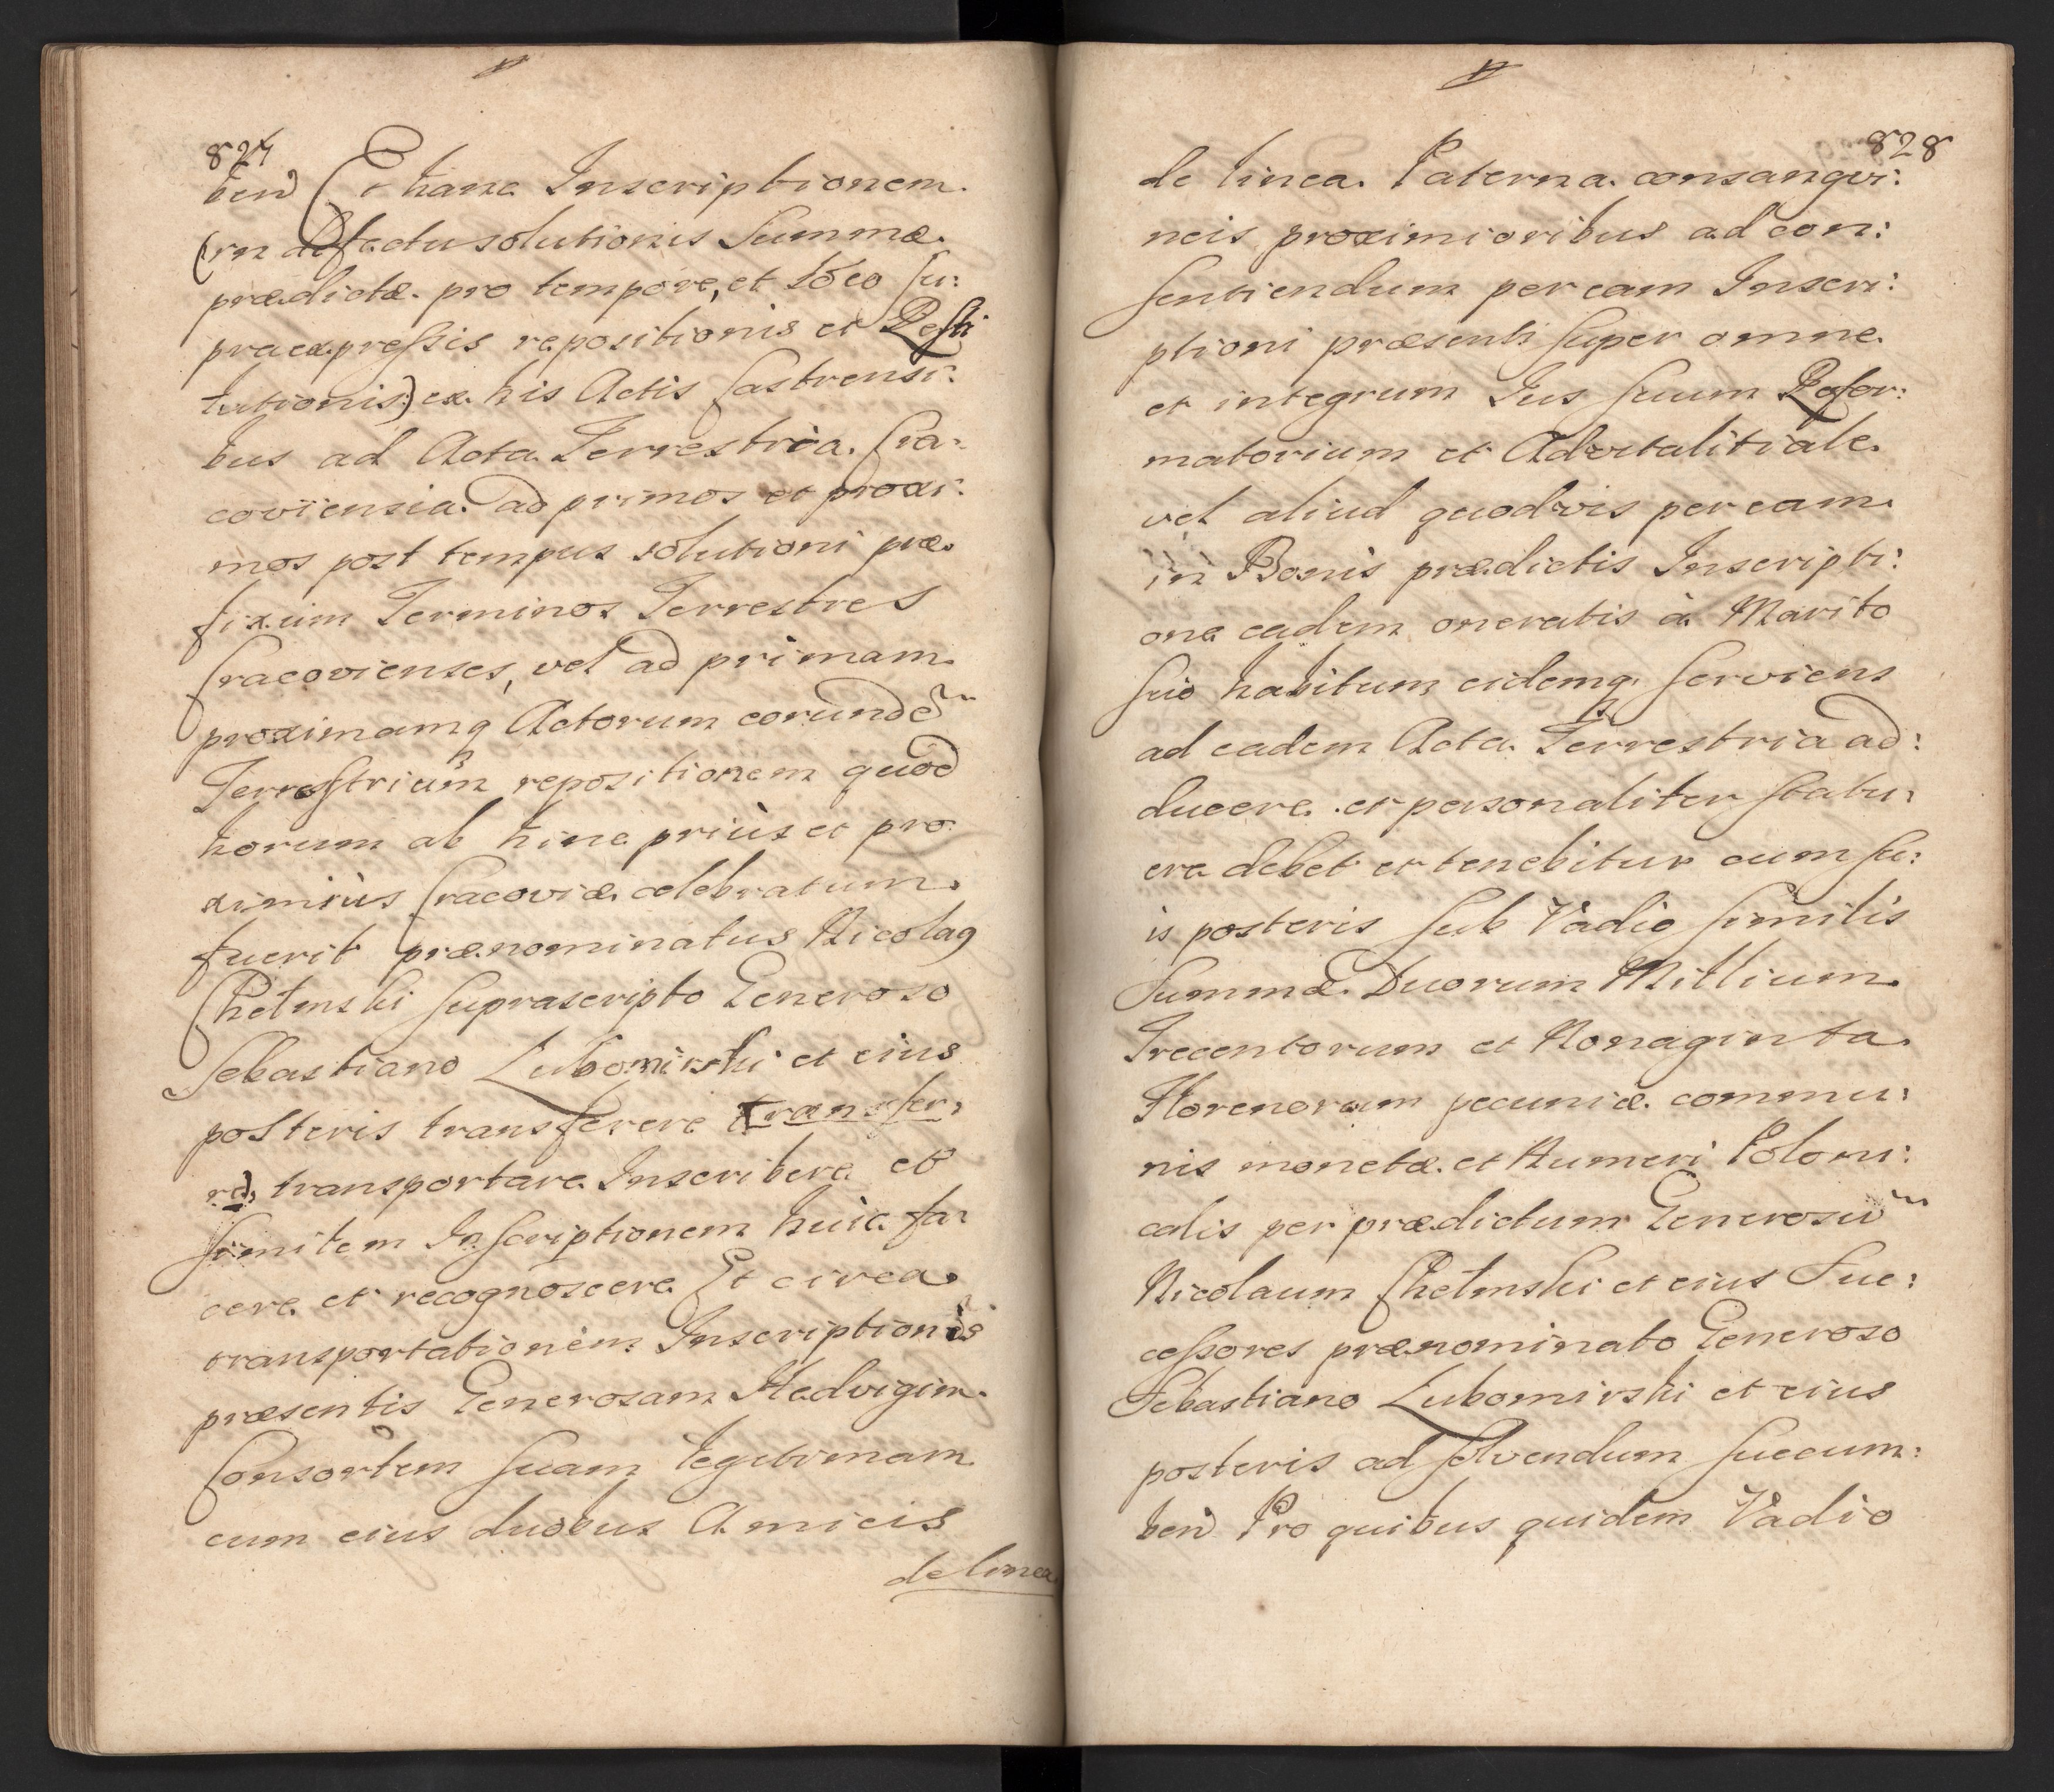 827
bend Et hanc Inscriptionem
(in defectu solutionis Summæ
prædictæ pro tempore, et loco su:
praexpressis repositionis et Resti
tutionis) ex his Actis Castrensi:
bus ad Acta Terrestria Cra:
coviensia ad primos et proxi:
mos post tempus solutioni præ
fixum Terminos Terrestres
Cracovienses, vel ad primam
proximamq Actorum eorunde~
Terrestrium repositionem quod
horum ab hinc priùs et pro
ximiùs Cracoviæ celebratum
fuerit prænominatus Nicolaq
Chełmski suprascripto Generoso
Sebastiano Lubomirski et eius
posteris transferere transfer:
re, transportare Inscribere et
similem Inscriptionem huic fa:
cere et recognoscere Et circa
transportationem Inscriptionis
præsentis Generosam Hedvigim
Consortem suam legitimam
cum eius duobus Amicis
de linea
828
de linea Paterna consangvi:
neis proximioribus ad con:
sentiendum per eam Inscri:
ptioni præsenti super omne
et integrum Ius suum Refor:
matorium et Advitalitiale
vel aliud quodvis per eam
in Bonis prædictis Inscripti:
one eadem oneratis à Marito
suo habitum eidemq serviens
ad eadem Acta Terrestria ad:
ducere et personaliter statu:
ere debet et tenebitur cum su:
is posteris sub Vadio similis
Summæ Duorum Millium
Trecentorum et Nonaginta
Florenorum pecuniæ commu:
nis monetæ et Numeri Poloni:
calis per prædictum Generosu~
Nicolaum Chełmski et eius Suc:
cessores prænominato Generoso
Sebastiano Lubomirski et eius
posteris ad solvendum succum:
bend Pro quibus quidem Vadio